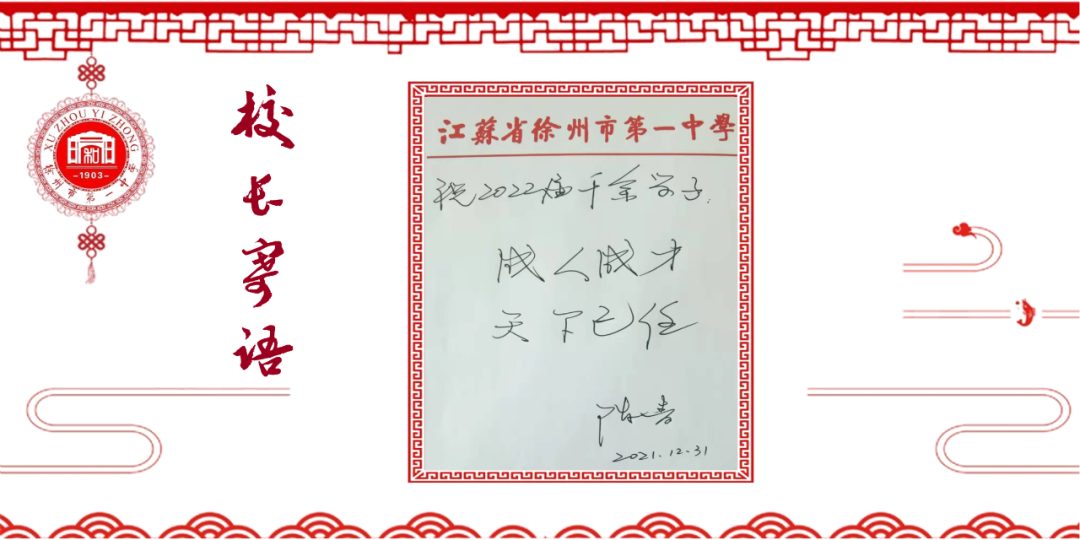 XU ZHOU YI ZHONG
1903
徐州市第一中学
校长寄语
江蘇省徐州市第一中學
祝2022届千余学子:
成人成才
天下己任
2021.12.31